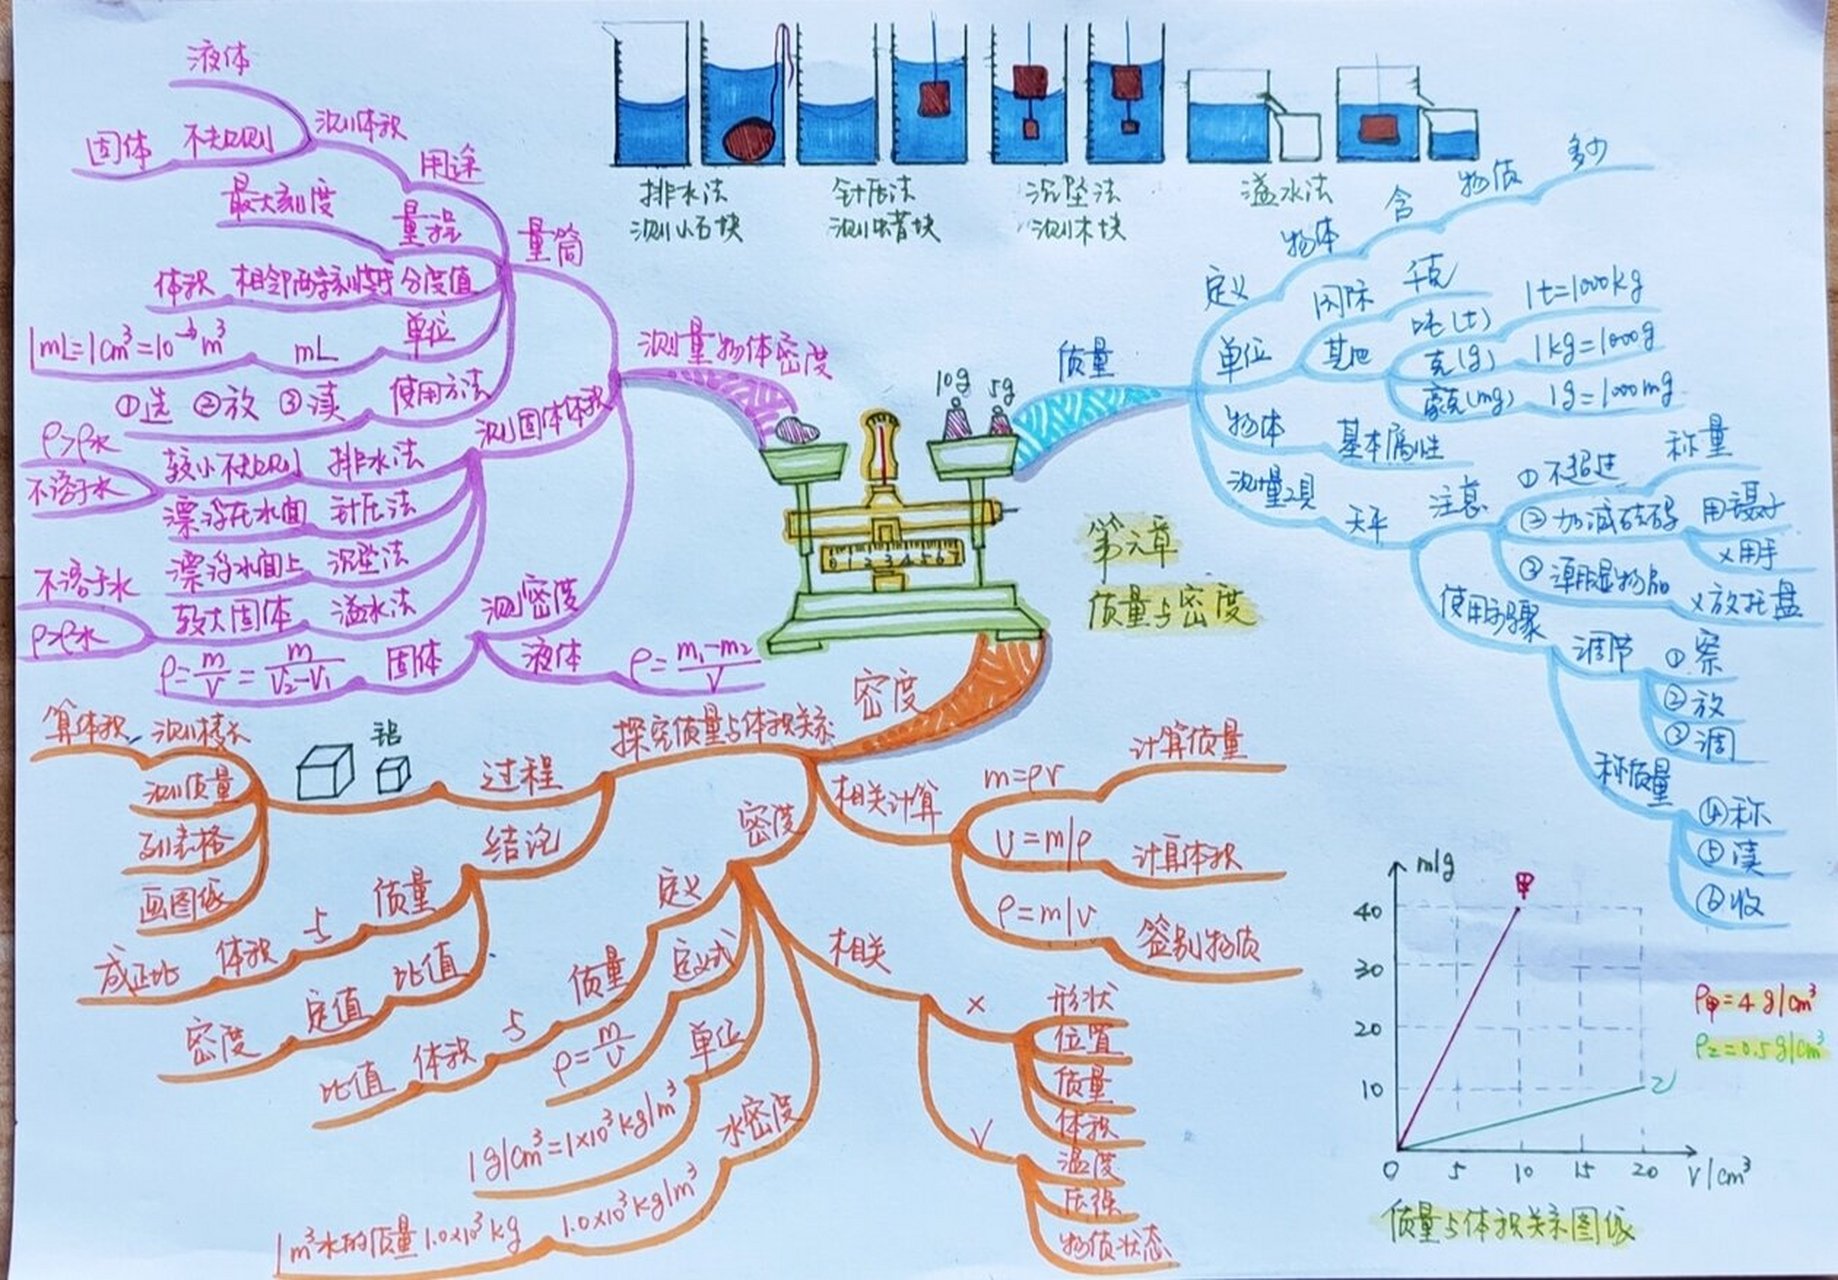 排水法
测小石块
针压法
测蜡块
沉坠法
测木块
溢水法
第六章
质量与密度
10g 5g
0 1 2 3 4 5 6 7
质量
定义
物体
含
物质
多少
单位
国际
千克
其他
吨(t)
1t=1000kg
克(g)
1kg=1000g
毫克(mg)
1g=1000mg
物体
基本属性
测量工具
天平
注意
①不超过
称量
②加减砝码
用镊子
×用手
③潮湿物品
×放托盘
使用步骤
调节
①察
②放
③调
称质量
④称
⑤读
⑥收
测量物体密度
量筒
用途
测体积
液体
固体 不规则
量程
最大刻度
体积 相邻两条刻度线 分度值
单位
mL
1mL=1cm³=10⁻⁶m³
使用方法
①选 ②放 ③读
测固体体积
较小不规则 排水法
ρ>ρ水
不溶于水
漂浮在水面 针压法
漂浮水面上 沉坠法
较大固体 溢水法
不溶于水
ρ>ρ水
测密度
固体
ρ=m/V=m/V₂-V₁
液体
ρ=m₁-m₂/V
密度
探究质量与体积关系
过程
铝
测棱长
算体积
测质量
列表格
画图像
结论
质量
与
体积
成正比
比值
定值
密度
密度
定义
质量
与
体积
比值
定义式
ρ=m/V
单位
1g/cm³=1×10³kg/m³
水密度
1.0×10³kg/m³
1m³水的质量1.0×10³kg
相关
×
形状
位置
质量
体积
√
温度
压强
物质状态
相关计算
m=ρV
计算质量
V=m/ρ
计算体积
ρ=m/V
鉴别物质
m/g
40
30
20
10
0 5 10 15 20 V/cm³
甲
乙
ρ甲=4g/cm³
ρ乙=0.5g/cm³
质量与体积关系图像